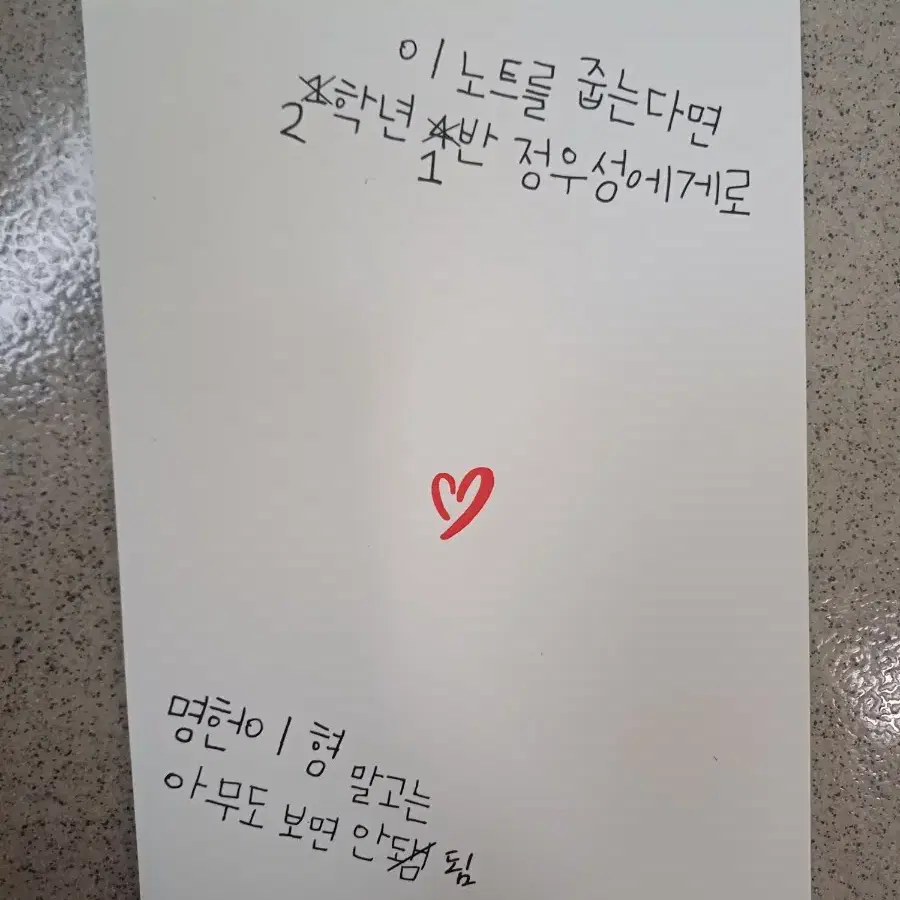 이 노트를 줍는다면
2학년 1반 정우성에게로
명헌이 형 말고는
아무도 보면 안 됨